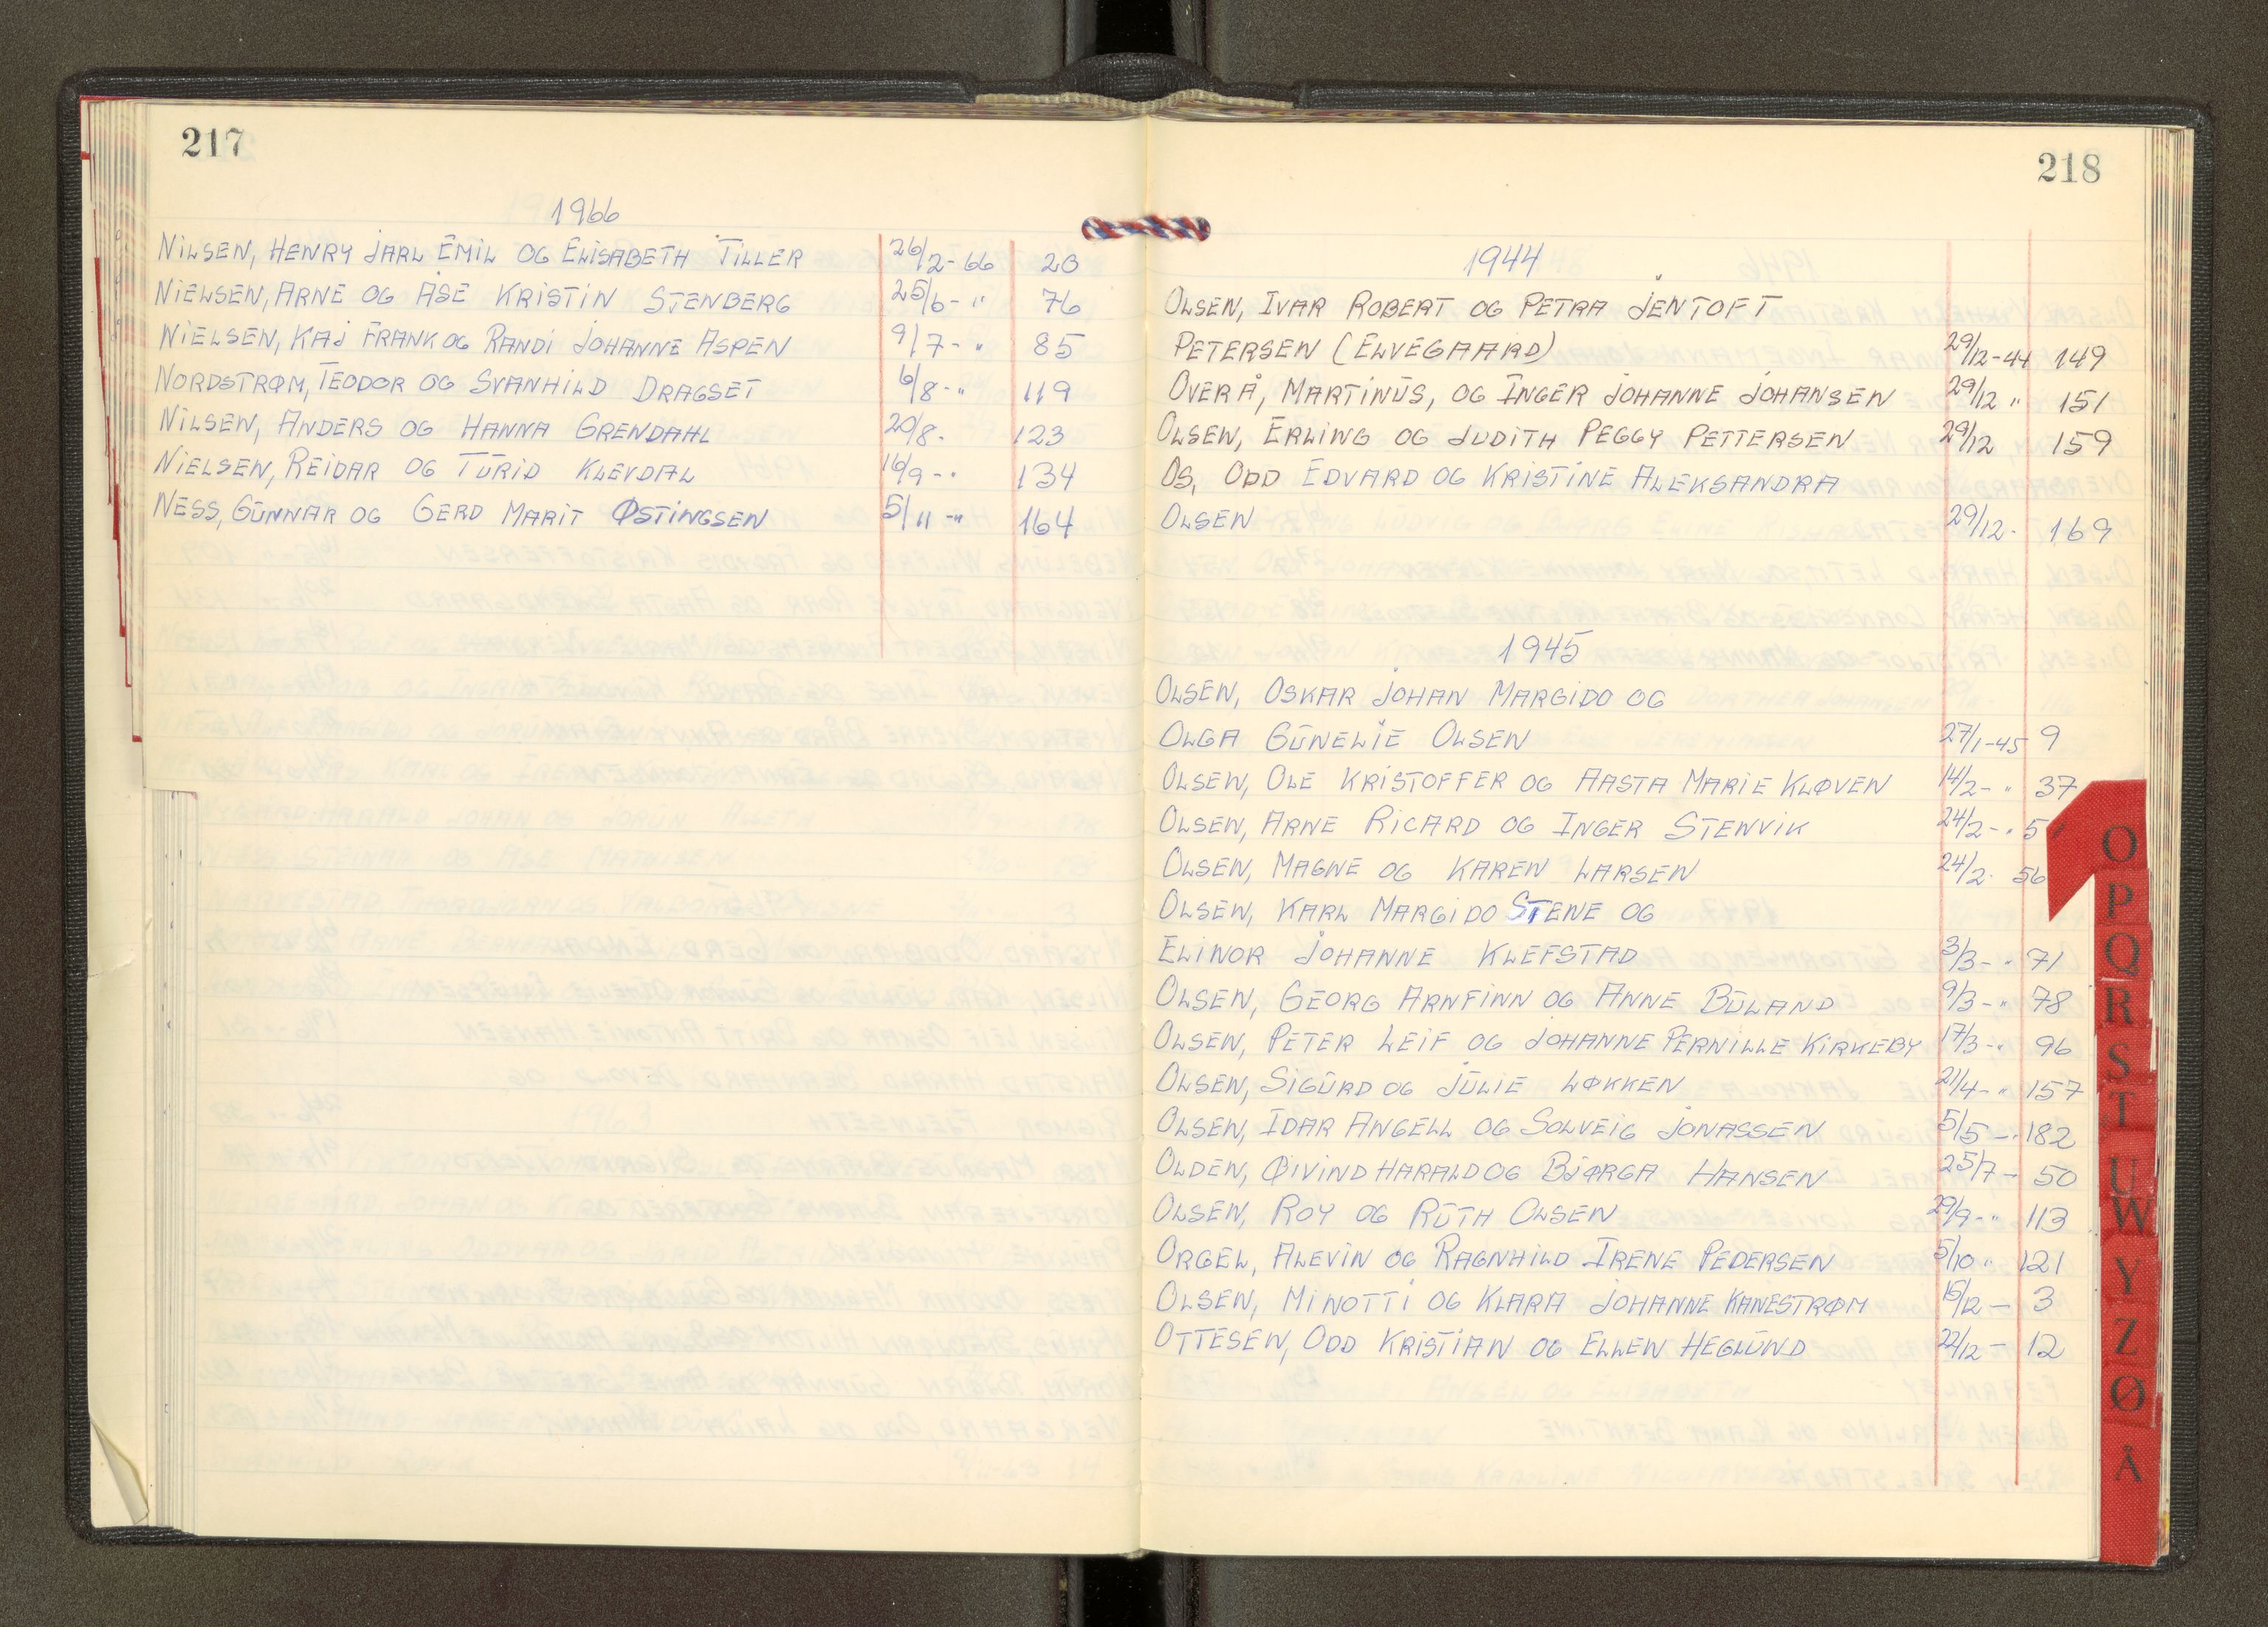 217
1966
NILSEN, HENRY JARL EMIL OG ELISABETH TILLER 26/2-66 20
NIELSEN, ARNE OG ÅSE KRISTIN STENBERG 25/6-" 76
NIELSEN, KAJ FRANK OG RANDI JOHANNE ASPEN 9/7-" 85
NORDSTRØM, TEODOR OG SVANHILD DRAGSET 6/8-" 119
NILSEN, ANDERS OG HANNA GRENDAHL 20/8. 123
NIELSEN, REIDAR OG TURID KLEVDAL 16/9-" 134
NESS, GUNNAR OG GERD MARIT ØSTINGSEN 5/11-" 164
218
1944
OLSEN, IVAR ROBERT OG PETRA JENTOFT
PETERSEN (ELVEGAARD) 29/12-44 149
OVERÅ, MARTINUS, OG INGER JOHANNE JOHANSEN 29/12 " 151
OLSEN, ERLING OG JUDITH PEGGY PETTERSEN 29/12 159
OS, ODD EDVARD OG KRISTINE ALEKSANDRA
OLSEN 29/12- 169
1945
OLSEN, OSKAR JOHAN MARGIDO OG
OLGA GUNELIE OLSEN 27/1-45 9
OLSEN, OLE KRISTOFFER OG AASTA MARIE KLØVEN 14/2-" 37
OLSEN, ARNE RICARD OG INGER STENVIK 24/2-" 5
OLSEN, MAGNE OG KAREN LARSEN 24/2- 56
OLSEN, KARL MARGIDO STENE OG
ELINOR JOHANNE KLEFSTAD 3/3-" 71
OLSEN, GEORG ARNFINN OG ANNE BULAND 9/3-" 78
OLSEN, PETER LEIF OG JOHANNE PERNILLE KIRKEBY 17/3-" 96
OLSEN, SIGURD OG JULIE LØKKEN 21/4-" 157
OLSEN, IDAR ANGELL OG SOLVEIG JONASSEN 5/5-" 182
OLDEN, ØIVIND HARALD OG BJØRGA HANSEN 25/7- 50
OLSEN, ROY OG RUTH OLSEN 29/9-" 113
ORGEL, ALEVIN OG RAGNHILD IRENE PEDERSEN 5/10 " 121
OLSEN, MINOTTI OG KLARA JOHANNE KANESTRØM 15/12 - 3
OTTESEN, ODD KRISTIAN OG ELLEN HEGLUND 22/12 - 12
O
P
Q
R
S
T
U
W
Y
Z
Ø
Å